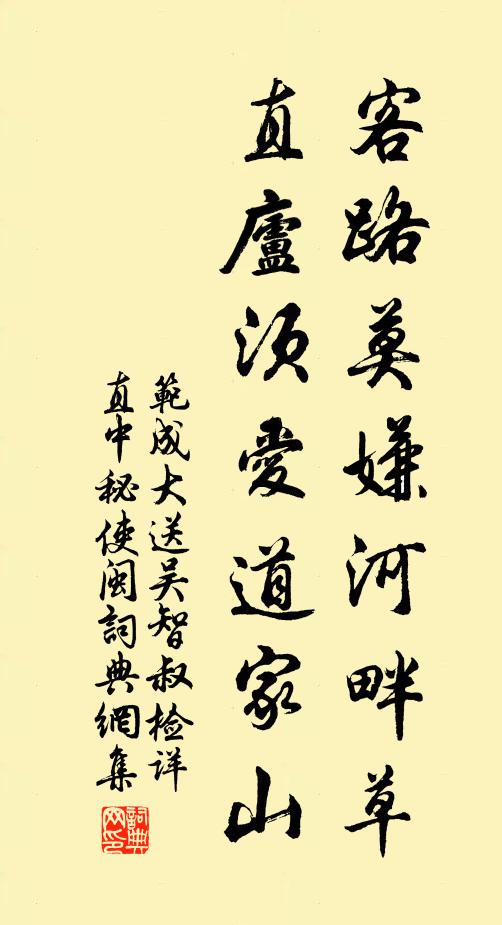 客路莫嫌河畔草
直廬須愛道家山
範成大送吴智叔检详
直中秘使闽詞典網集
詞典
网印